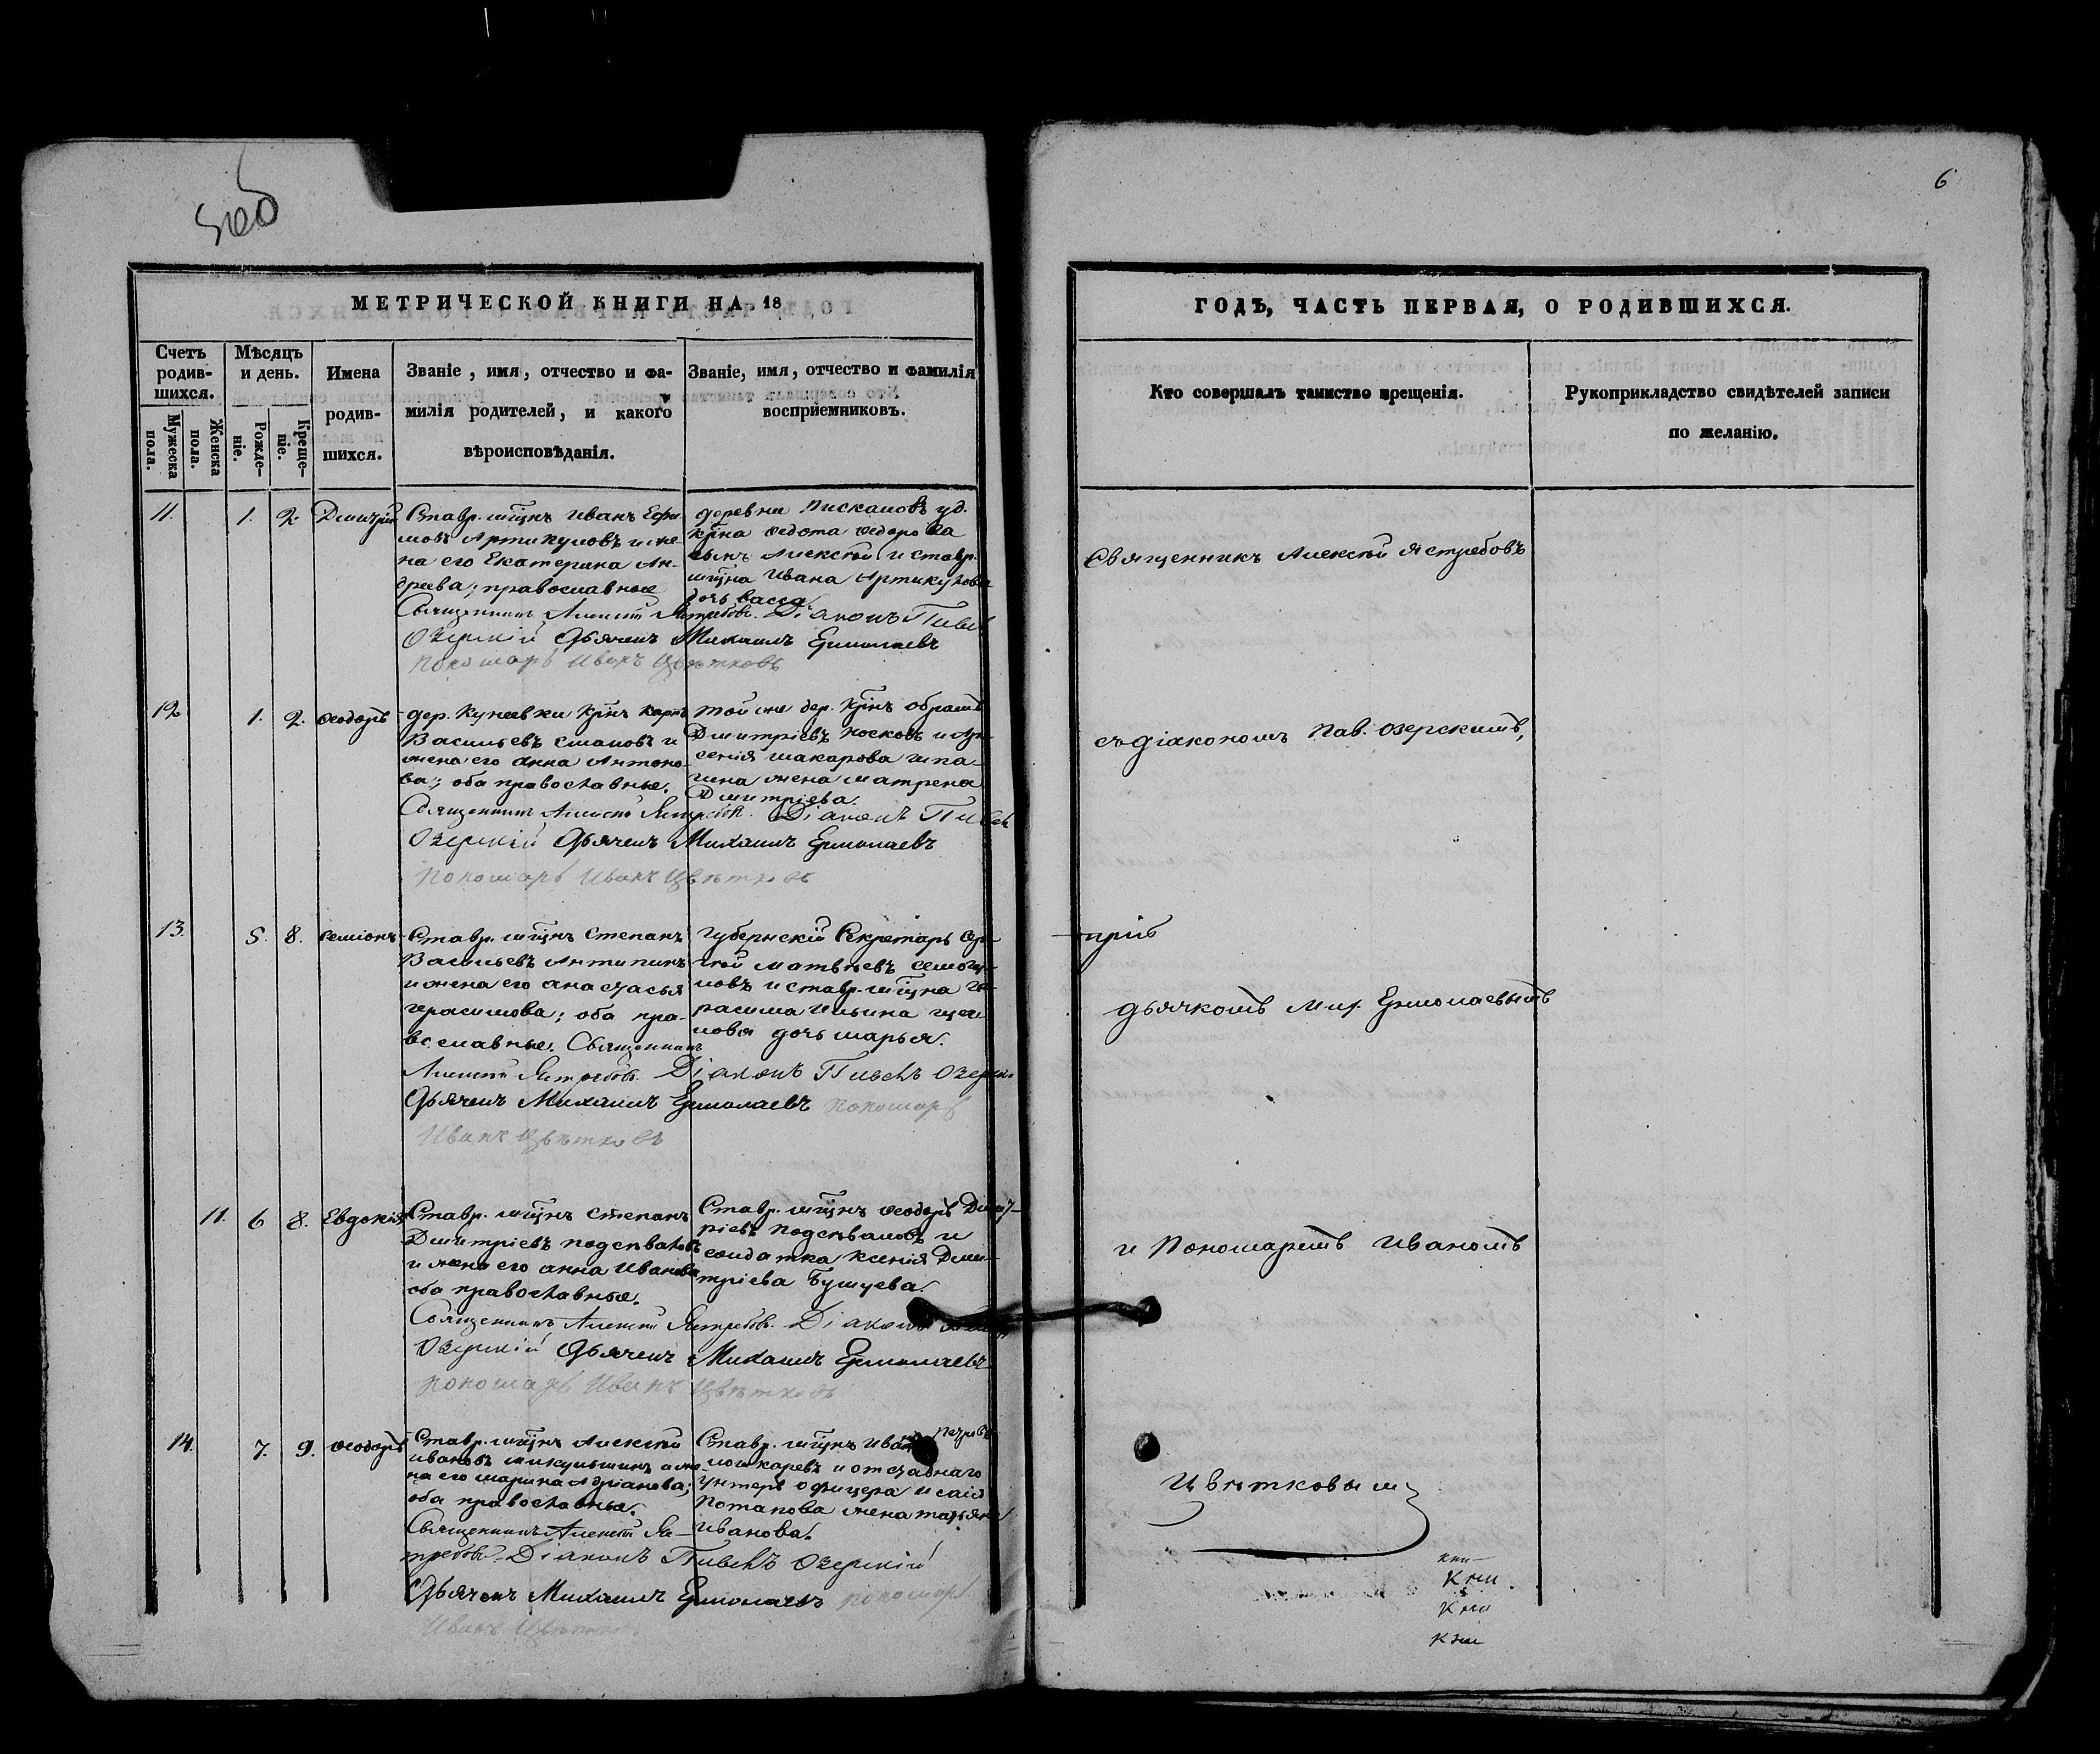 6
МЕТРИЧЕСКОЙ КНИГИ НА 18
Счетъ родив-
шихся.
Мужеска пола.
Женска пола.
Мѣсяцъ и день.
Рожде-
ніе.
Креще-
ніе.
Имена
родив-
шихся.
Званіе, имя, отчество и фа-
милія родителей, и какого
вѣроисповѣданія.
Званіе, имя, отчество и фамилія
воспріемниковъ.
11. 1. 2. Дмитрій
Ставр. мщнъ Иванъ Ефи
мовъ Артикуловъ и же
на его Екатерина Ан-
дреева; православные
деревни Пискаловъ уд.
крна Федота Федорова
сынъ Алексѣй и ставр.
мщна Ивана Артикулова
дочь Васса
Священникъ Алексѣй Ястребовъ. Діаконъ Павелъ
Озерскій Дьячекъ Михаилъ Ермолаевъ
Пономарь Иванъ Цвѣтковъ
12 1. 2. Ѳеодоръ
дер. Кунеевки крнъ
Васильевъ и
жена его Анна Антоно-
ва; оба православные.
той же дер. крнъ
Дмитріевъ Носковъ и
жена Матрена
Дмитріева.
Священникъ Алексѣй Ястребовъ. Діаконъ Павелъ
Озерскій Дьячекъ Михаилъ Ермолаевъ
Пономарь Иванъ Цвѣтковъ
13. 5. 8. Семіонъ
Ставр. мщнъ Степанъ
Васильевъ Антипинъ
и жена его Анастасья
Герасимова; оба пра-
вославные. Священникъ
Губернскій Секретарь Сер-
гѣй Матвѣевъ
и ставр. мщна Ге-
расима Ильина
дочь Марья.
Алексѣй Ястребовъ. Діаконъ Павелъ Озерскій
Дьячекъ Михаилъ Ермолаевъ Пономарь
Иванъ Цвѣтковъ
11. 6 8. Евдокія
Ставр. мщнъ Степанъ
Дмитріевъ Подсѣваловъ
и жена его Анна Иванова
оба православные.
Ставр. мщнъ Ѳеодоръ Дмит-
ріевъ Подсѣваловъ и
солдатка Ксенія Дми-
тріева Бушуева.
Священникъ Алексѣй Ястребовъ. Діаконъ
Озерскій Дьячекъ Михаилъ Ермолаевъ
Пономарь Иванъ Цвѣтковъ
14. 7. 9. Ѳеодоръ
Ставр. мщнъ Алексѣй
Ивановъ Микульшинъ и же-
на его Марина Адріанова;
оба православные.
Ставр. мщнъ Иванъ Петровъ
и отставнаго
унтеръ офицера Исаія
Потапова жена Татьяна
Иванова.
Священникъ Алексѣй Яс-
требовъ. Діаконъ Павелъ Озерскій
Дьячекъ Михаилъ Ермолаевъ Пономарь
Иванъ Цвѣтковъ
ГОДЪ, ЧАСТЬ ПЕРВАЯ, О РОДИВШИХСЯ.
Кто совершалъ таинство крещенія.
Рукоприкладство свидѣтелей записи
по желанію.
Священникъ Алексѣй Ястребовъ
съ діакономъ Пав. Озерскимъ,
при
дьячкомъ Мих. Ермолаевымъ
и Пономаремъ Иваномъ
Цвѣтковымъ